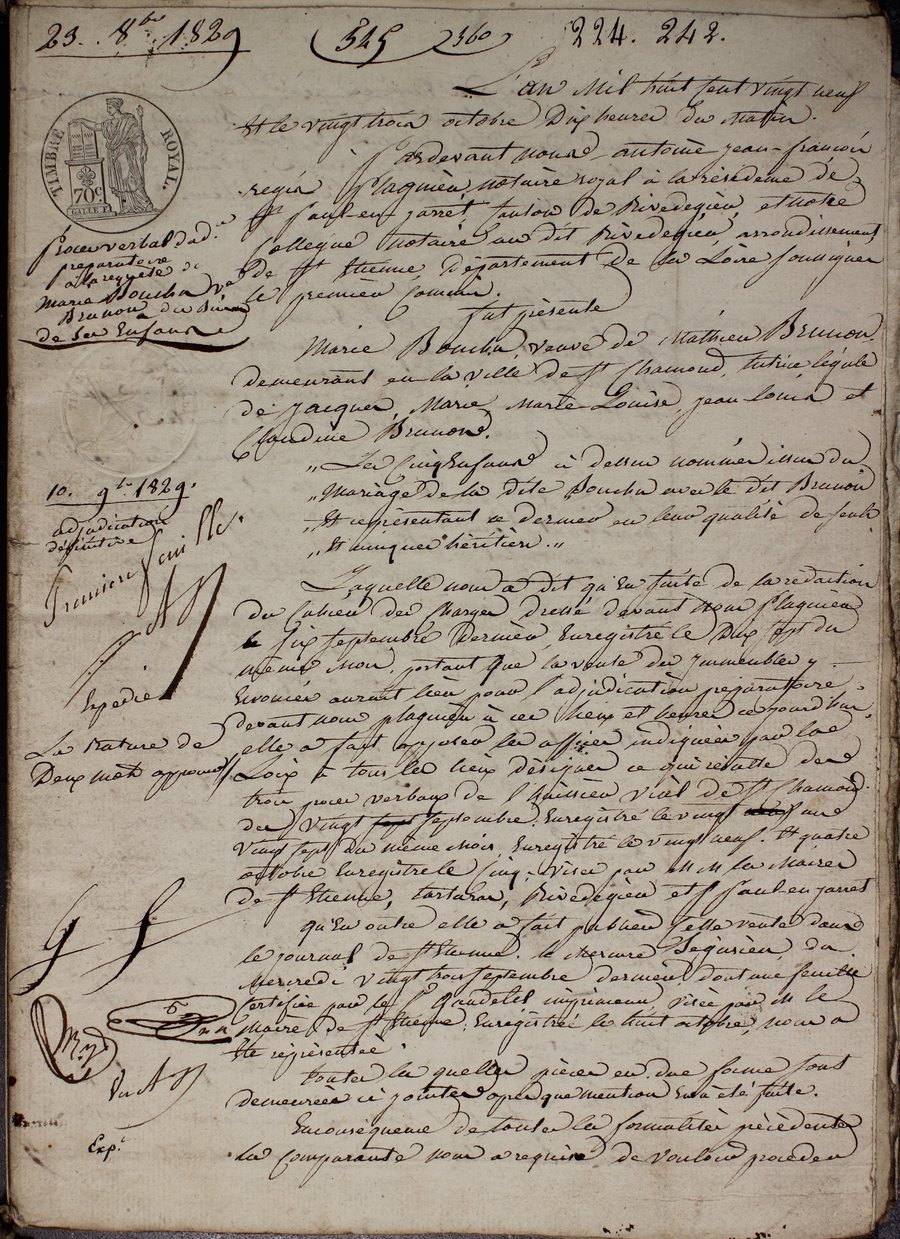 23. 8bre 1829
545
360
224. 242.
L'an mil huit cent vingt neuf
Et le vingt trois octobre Dix heures du matin.
TIMBRE ROYAL.
70c.
Pardevant nous antoine jean-françois
regis Plaquien, notaire royal à la résidence de
St Paul-en-jarret, canton de Rivedegier, et notre
Collegue notaire au dit Rivedegier, arrondissement
De St Etienne, Département de la Loire soussignés
le premier Commis,
fut présente
Procès verbal d'adon
preparatoire
à la requête de
Marie Bouchu Ve
Brunon
de ses Enfans
Marie Bouchu, veuve de Mathieu Brunon,
demeurant en la ville de St Chamond, tutrice légale
de jacques, Marie, Marie Louise, jean Louis et
Claudine Brunon.
„ Les Cinq Enfans ci dessus nommés issus du
„ Mariage de la dite Bouchu avec le dit Brunon
„ Et représentant ce dernier en leur qualité de seuls
„ Et uniques héritiers. „
10. 9bre 1829.
adjudication
définitive
Premiere feuille.
Laquelle nous a dit qu'En suite de la rédaction
du Cahier des Charges dressé devant nous Plaquien
le six septembre Dernier Enregistré le Dix sept du
même mois, portant que la vente des Immeubles y
Enoncés aurait lieu pour l'adjudication préparatoire
devant nous plaquien à ces lieux et heures ce jourd'hui,
elle a fait apposer les affiches indiquées par les
Loix à tous les lieux désignés ce qui résulte des
trois procès verbaux de l'huissier Vial de St Chamond
des vingt sept septembre Enregistré le vingt
Vingt sept du même mois Enregistré le vingt neuf. Et quatre
octobre Enregistré le cinq, visés par MM les Maires
de St Etienne, tartaras, Rivedegier et St Paul en jarret
Expedié
La rature de
Deux mots approuvés
qu'En outre elle a fait publier cette vente dans
le journal de St Etienne, le Mercure Ségusien, du
Mercredi vingt trois septembre dernier, dont une feuille
Certifiée par le Sr Gaudelet imprimeur, visée par M le
Maire de St Etienne, Enregistrée le huit octobre nous a
Eté représentée.
toutes les quelles pièces en due forme sont
demeurées ci jointes après que mention en a été faite.
Enconséquence de toutes les formalités précédentes
La Comparante nous a requis de vouloir procéder
Exp.